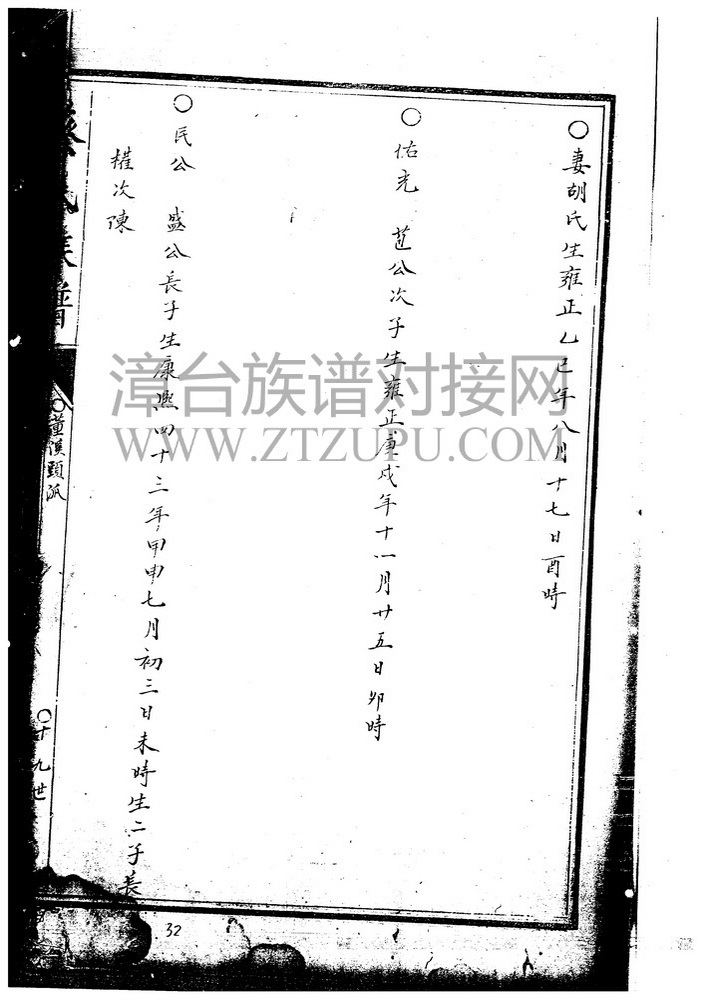 ○妻胡氏生雍正乙巳年八月十七日酉時
○佑光 芑公次子生雍正庚戌年十一月廿五日卯時
○民公 盛公長子生康熙四十三年甲申七月初三日未時生二子長
權次陳
氏族譜
○董溪頭派
○十九世
32
漳台族谱对接网
WWW.ZTZUPU.COM